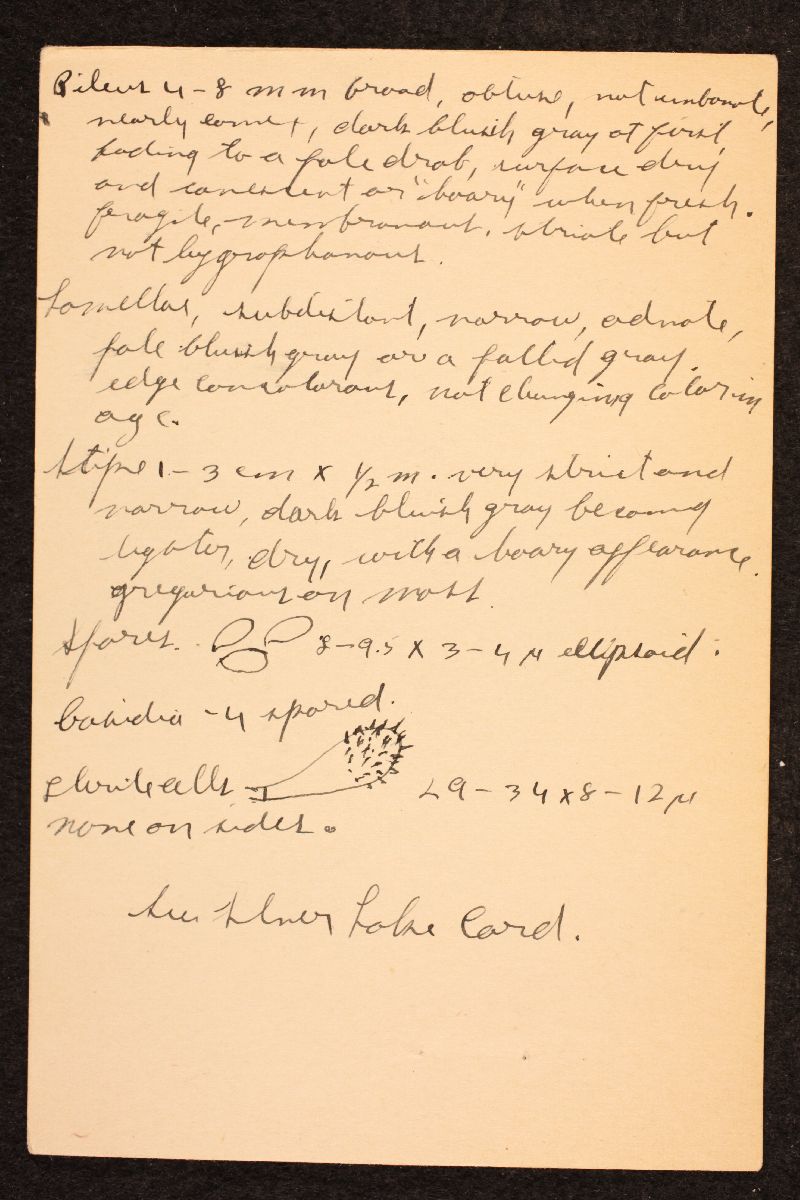 Pileus 4-8 mm broad, obtuse, not umbonate,
nearly convex, dark bluish gray at first,
fading to a pale drab, surface dry
and canescent or "hoary" when fresh.
fragile, membranous, striate but
not hygrophanous.
Lamellae, subdistant, narrow, adnate,
pale bluish gray or a pallid gray,
edge concolorous, not changing color in
age.
Stipe 1-3 cm x 1/2 m. very strict and
narrow, dark bluish gray becoming
lighter, dry, with a hoary appearance.
gregarious on moss.
Spores. 8-9.5 x 3-4 µ ellipsoid.
basidia - 4 spored.
sterile cells 29-34 x 8-12 µ
none on sides.
See Silver Lake Card.